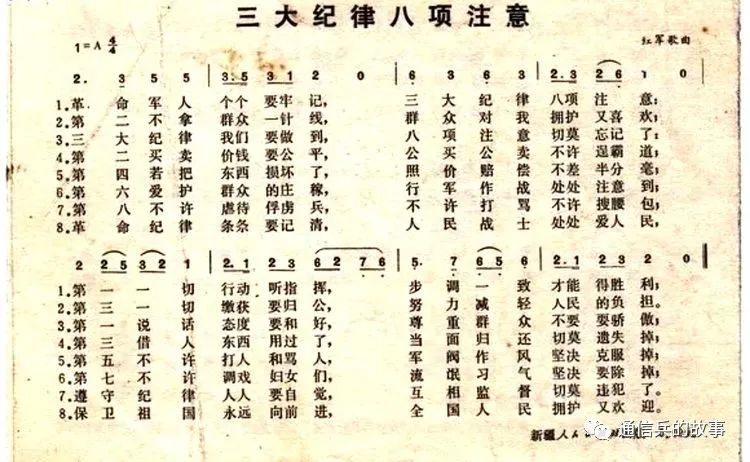 三大纪律八项注意
1=A 4/4 红军歌曲
2. 3 5 5 | 3.5 3 1 2 0 | 6 3 6 3 | 2.3 2 6 1 0
1.革命军人个个要牢记, 三大纪律八项注意;
2.第二不拿群众一针线, 群众对我拥护又喜欢;
3.三大纪律我们要做到, 八项注意切莫忘记了:
4.第二买卖价钱要公平, 公买公卖不许逞霸道;
5.第四若把东西损坏了, 照价赔偿不差半分毫;
6.第六爱护群众的庄稼, 行军作战处处注意到;
7.第八不许虐待俘虏兵, 不许打骂不许搜腰包;
8.革命纪律条条要记清, 人民战士处处爱人民,
2 2 5 3 2 1 | 2.1 2 3 1 6 2 7 6 | 5. 7 6 5 1 | 2.1 2 3 2 0
1.第一一切行动听指挥, 步调一致才能得胜利;
2.第三一切缴获要归公, 努力减轻人民的负担.
3.第一说话态度要和好, 尊重群众不要耍骄傲;
4.第三借人东西用过了, 当面归还切莫遗失掉;
5.第五不许打人和骂人, 军阀作风坚决克服掉;
6.第七不许调戏妇女们, 流氓习气坚决要除掉;
7.遵守纪律人人要自觉, 互相监督切莫违犯了.
8.保卫祖国永远向前进, 全国人民拥护又欢迎.
新疆人
通信兵的故事